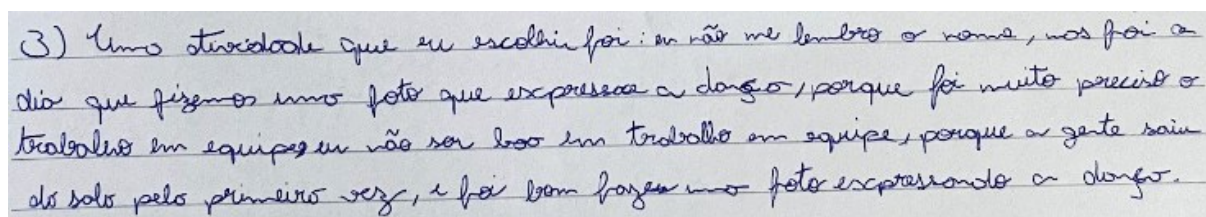 3) Uma atividade que eu escolhi foi: eu não me lembro o nome, mas foi o
dia que fizemos uma foto que expressasse a dança, porque foi muito preciso o
trabalho em equipe, eu não sou boa em trabalho em equipe, porque a gente saiu
da sala pela primeira vez, e foi bom fazer uma foto expressando a dança.